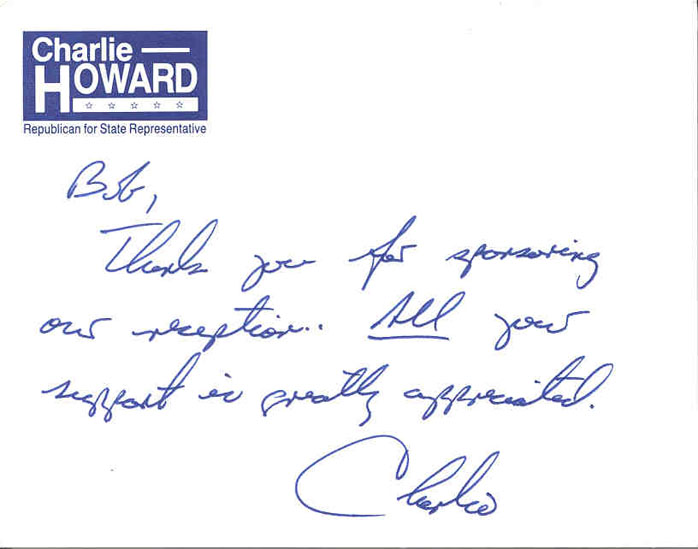 Charlie
HOWARD
Republican for State Representative
Bob,
Thank you for sponsoring
our reception.. All your
support is greatly appreciated.
Charlie